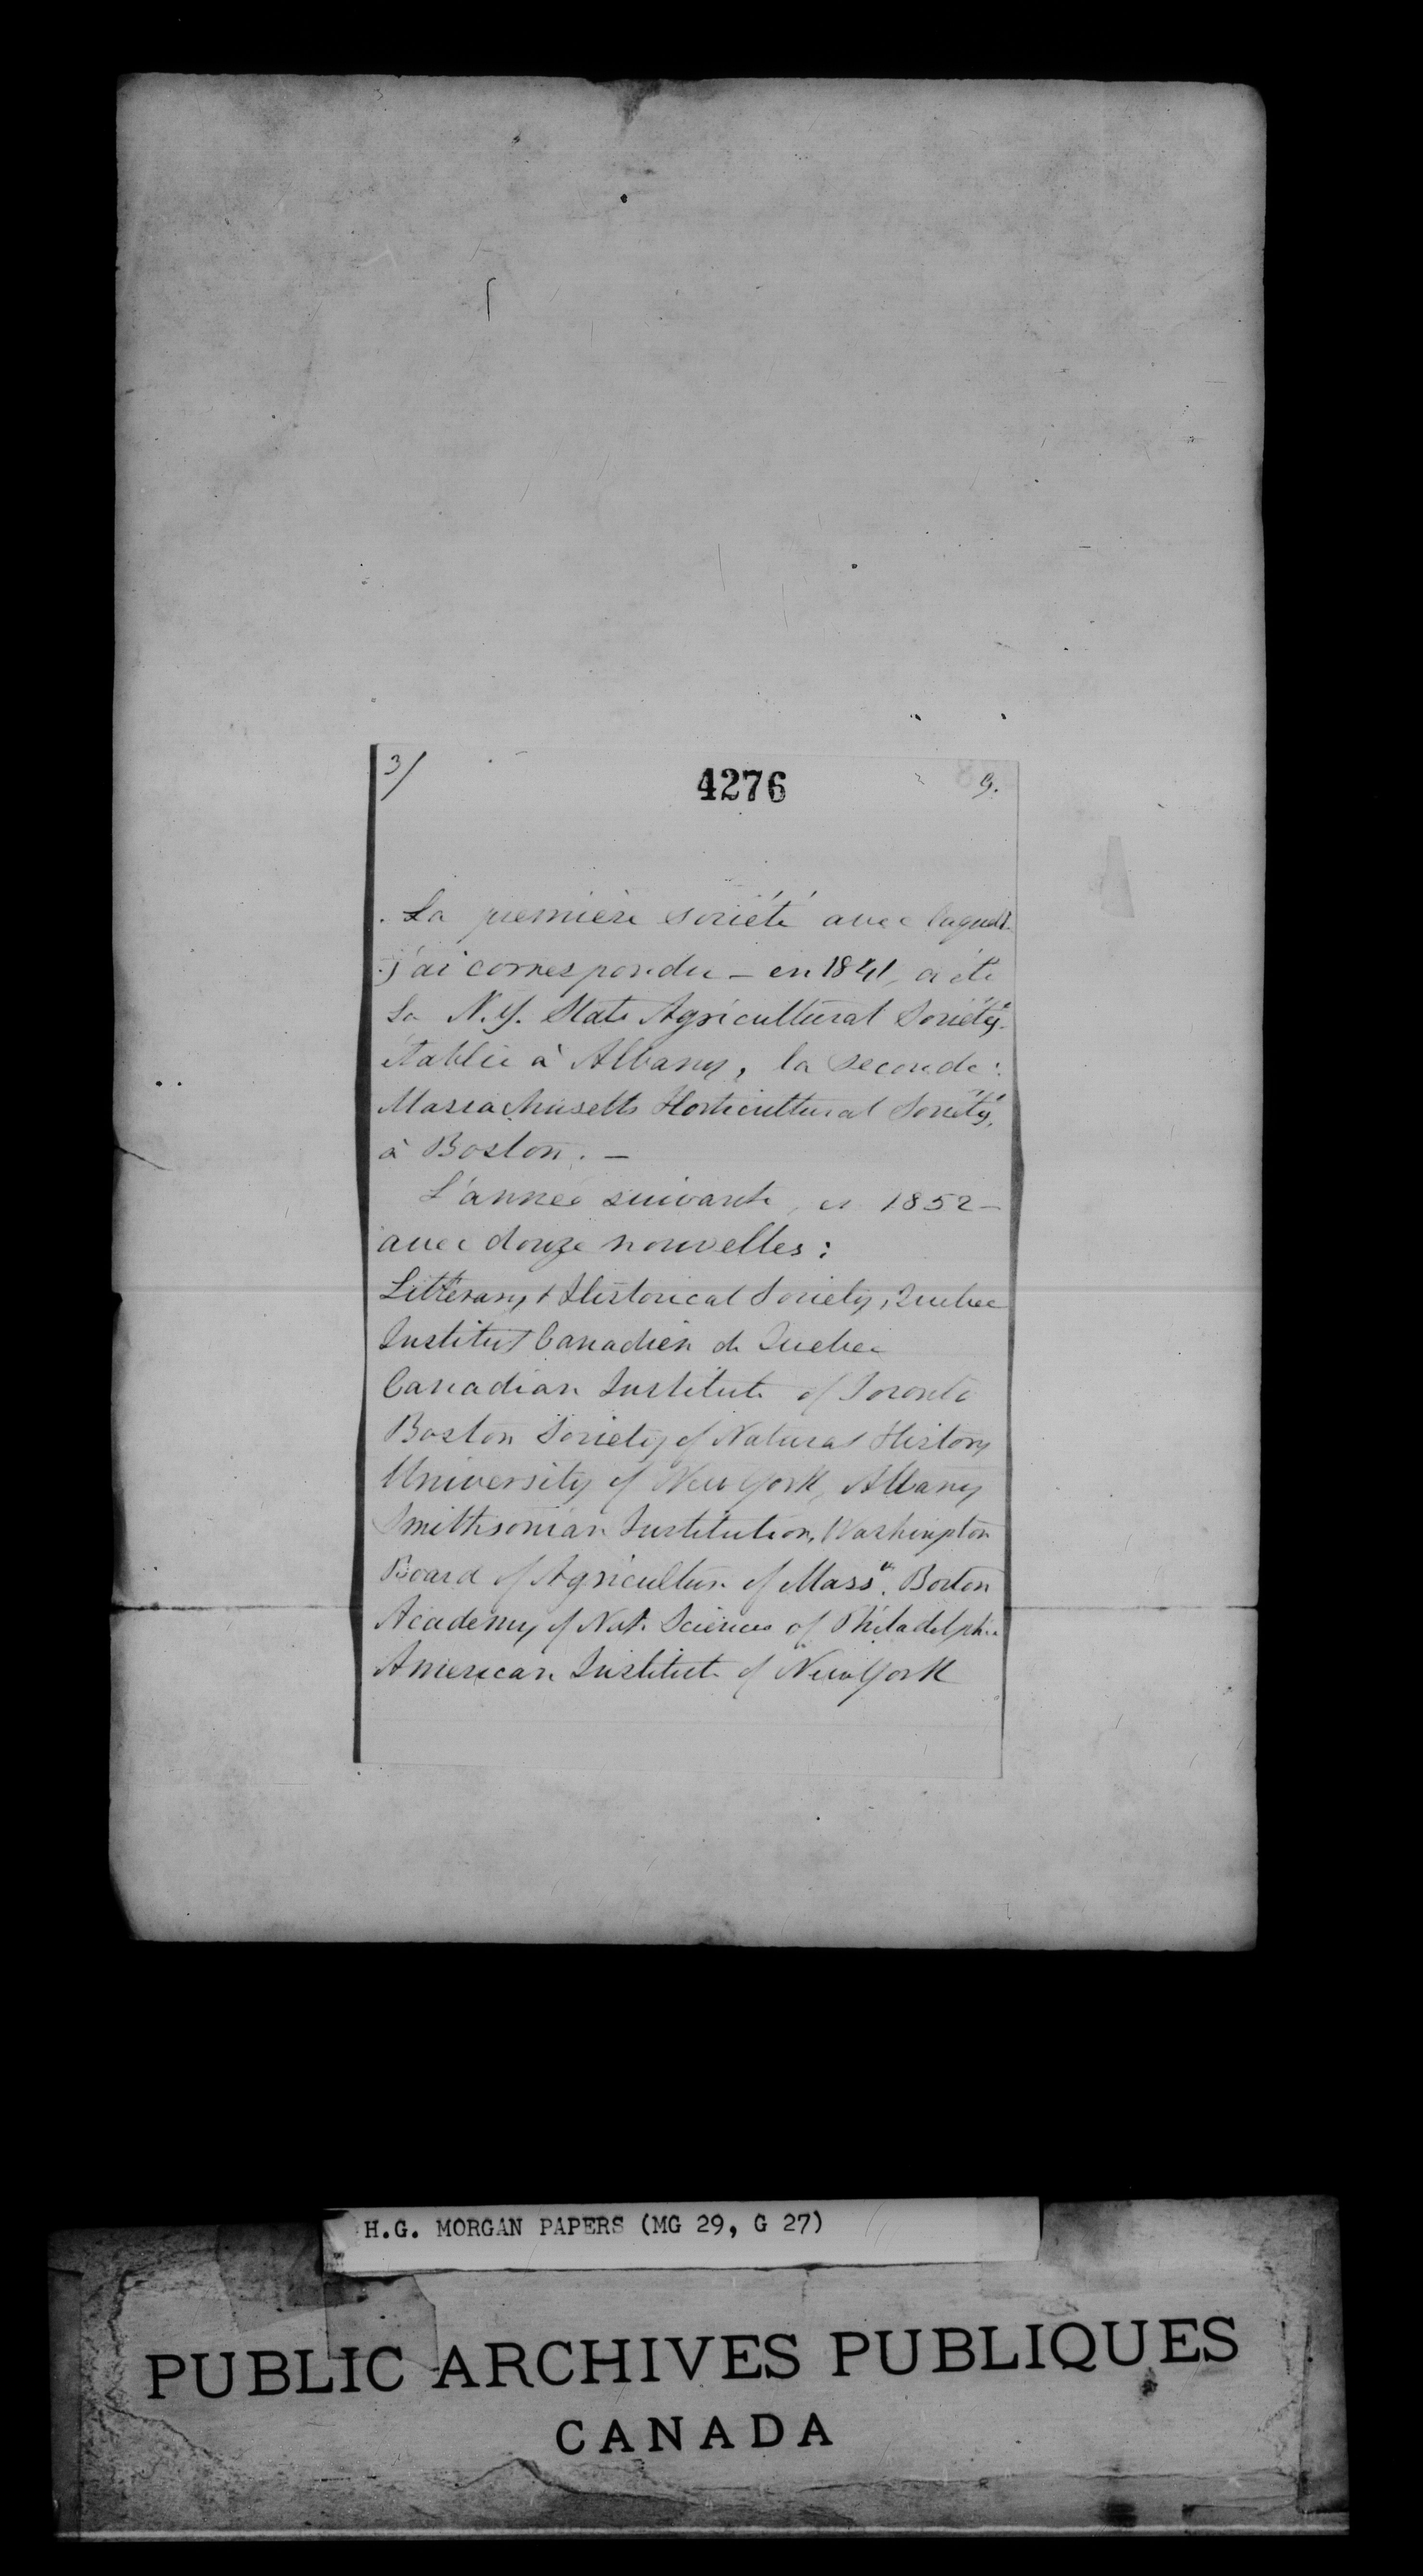 3/
4276
9.
La première société avec laquelle
j'ai correspondu – en 1841, a été
La N.Y. State Agricultural Society
établie à Albany, la seconde :
Massachusetts Horticultural Society,
à Boston. –
L'année suivante, en 1852 –
avec douze nouvelles :
Litterary & Historical Society, Quebec
Institut Canadien de Quebec
Canadian Institute of Toronto
Boston Society of Natural History
University of New York, Albany
Smithsonian Institution, Washington
Board of Agriculture of Mass. Boston
Academy of Nat. Sciences of Philadelphia
American Institute of New York
H.G. MORGAN PAPERS (MG 29, G 27)
PUBLIC ARCHIVES PUBLIQUES
CANADA